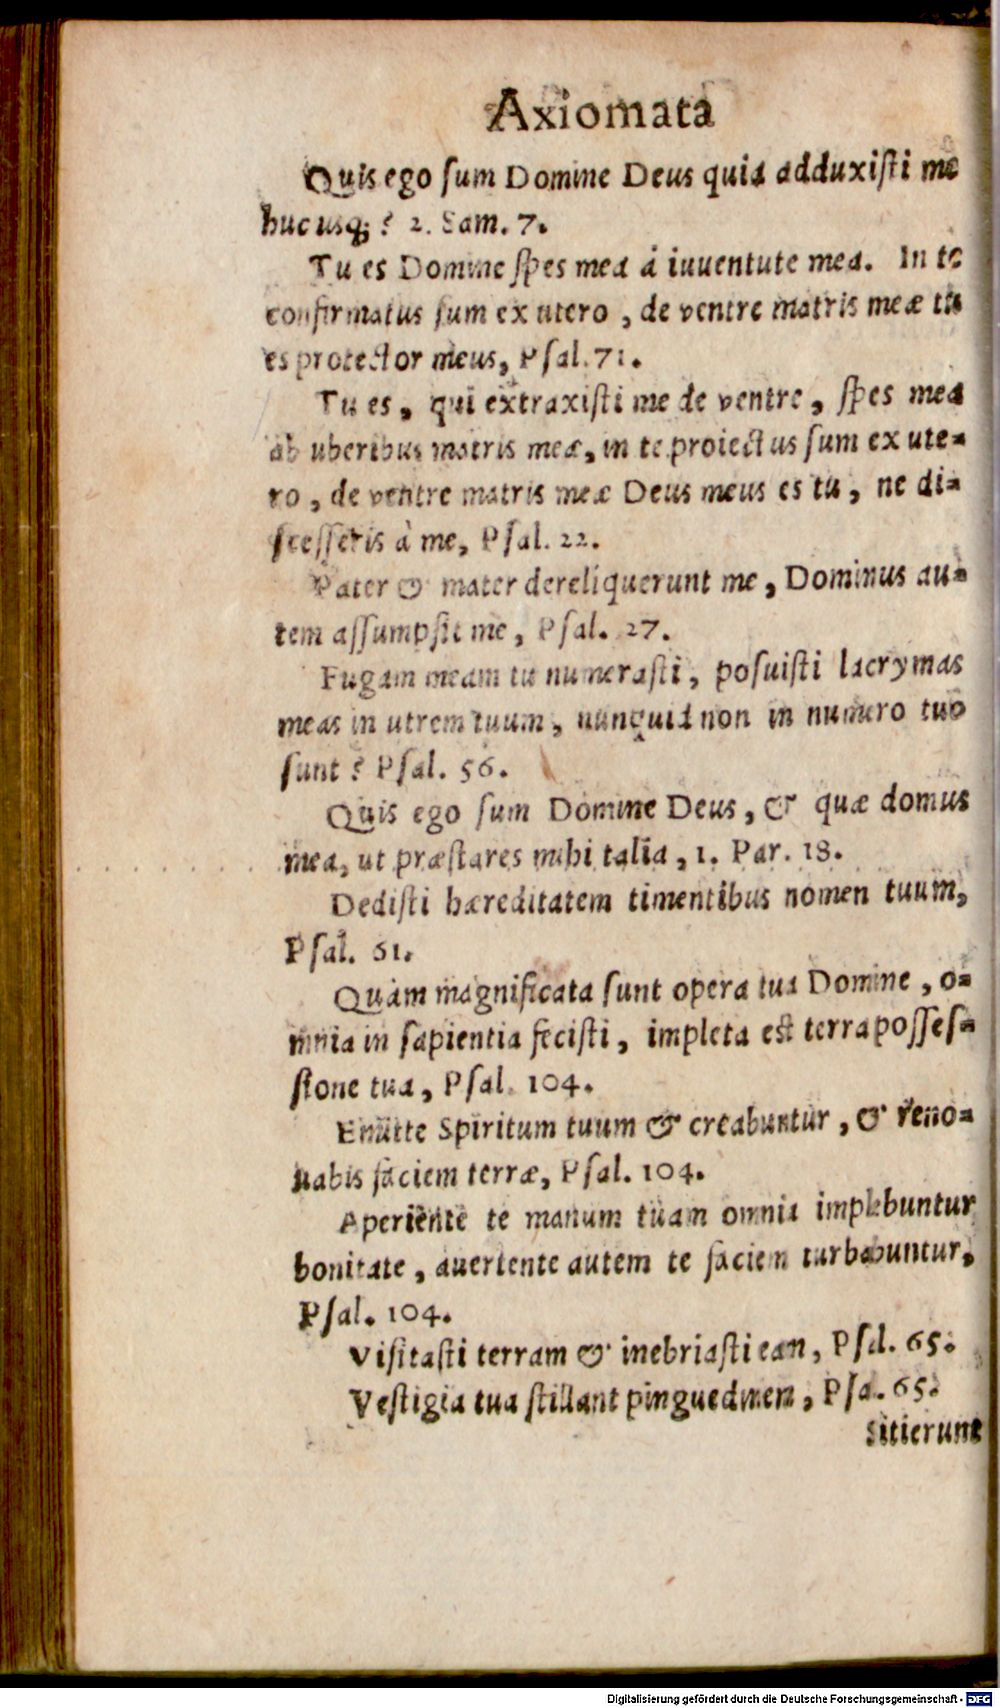 Axiomata
Quis ego ſum Domine Deus quia adduxiſti me
huc usq; ? 2. Sam. 7.
Tu es Domine ſpes mea à iuuentute mea. In te
confirmatus ſum ex utero , de ventre matris meæ tu
es protector meus, Pſal. 71.
Tu es , qui extraxiſti me de ventre , ſpes mea
ab uberibus matris meæ, in te proiectus ſum ex ute-
ro , de ventre matris meæ Deus meus es tu , ne di-
ſceſſeris à me, Pſal. 22.
Pater & mater dereliquerunt me , Dominus au-
tem aſſumpſit me , Pſal. 27.
Fugam meam tu numeraſti , poſuiſti lacrymas
meas in utrem tuum , nunquid non in numero tuo
ſunt ? Pſal. 56.
Quis ego ſum Domine Deus , & quæ domus
mea, ut præſtares mihi talia , 1. Par. 18.
Dediſti hæreditatem timentibus nomen tuum,
Pſal. 61.
Quàm magnificata ſunt opera tua Domine , o-
mnia in ſapientia feciſti , impleta eſt terra poſſeſ-
ſione tua , Pſal. 104.
Emitte Spiritum tuum & creabuntur , & reno-
uabis faciem terræ, Pſal. 104.
Aperiente te manum tuam omnia implebuntur
bonitate , auertente autem te faciem turbabuntur,
Pſal. 104.
Viſitaſti terram & inebriaſti eam , Pſal. 65.
Veſtigia tua ſtillant pinguedinem , Pſa. 65.
Sitierunt
Digitalisierung gefördert durch die Deutsche Forschungsgemeinschaft - DFG